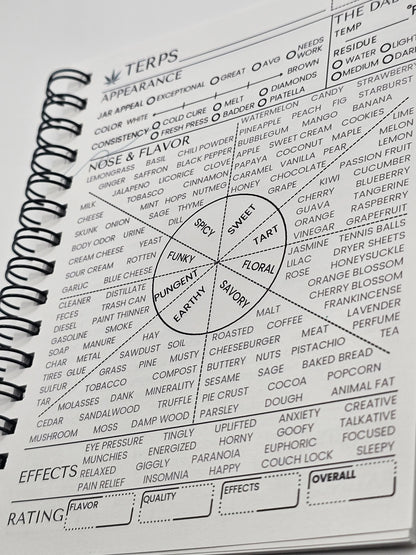 TERPS
APPEARANCE
JAR APPEAL EXCEPTIONAL GREAT AVG NEEDS WORK
COLOR WHITE BROWN
CONSISTENCY COLD CURE MELT DIAMONDS
FRESH PRESS BADDER PIATELLA
THE DA
TEMP
RESIDUE
WATER LIGH
MEDIUM DARK
NOSE & FLAVOR
LEMONGRASS BASIL CHILI POWDER
GINGER SAFFRON BLACK PEPPER
JALAPENO LICORICE CLOVE
TOBACCO CINNAMON
MINT HOPS NUTMEG
SAGE THYME
DILL
SPICY
WATERMELON CANDY STRAWBERRY
PINEAPPLE PEACH FIG STARBURST
BUBBLEGUM MANGO BANANA
APPLE SWEET CREAM COOKIES
PAPAYA COCONUT MAPLE
CARAMEL VANILLA PEAR
HONEY CHOCOLATE
GRAPE
SWEET
LIME
MELON LEMON
PASSION FRUIT
KIWI CUCUMBER
CHERRY BLUEBERRY
GUAVA TANGERINE
ORANGE RASPBERRY
VINEGAR GRAPEFRUIT
TART
MILK
CHEESE
SKUNK ONION
BODY ODOR URINE
CREAM CHEESE YEAST
SOUR CREAM ROTTEN
GARLIC BLUE CHEESE
FUNKY
JASMINE TENNIS BALLS
LILAC DRYER SHEETS
ROSE HONEYSUCKLE
ORANGE BLOSSOM
CHERRY BLOSSOM
FRANKINCENSE
LAVENDER
PERFUME
TEA
FLORAL
CLEANER DISTILLATE
FECES TRASH CAN
DIESEL PAINT THINNER
GASOLINE SMOKE
SOAP MANURE
CHAR METAL
TIRES GLUE
SULFUR
TAR
PUNGENT
HAY
SAWDUST SOIL
GRASS PINE MUSTY
TOBACCO COMPOST
MOLASSES DANK MINERALITY
CEDAR SANDALWOOD TRUFFLE
MUSHROOM MOSS DAMP WOOD
EARTHY
MALT
ROASTED COFFEE
CHEESEBURGER MEAT
BUTTERY NUTS PISTACHIO
SESAME SAGE BAKED BREAD
PIE CRUST COCOA POPCORN
PARSLEY DOUGH ANIMAL FAT
SAVORY
EFFECTS
EYE PRESSURE TINGLY UPLIFTED ANXIETY CREATIVE
MUNCHIES ENERGIZED HORNY GOOFY TALKATIVE
RELAXED GIGGLY PARANOIA EUPHORIC FOCUSED
PAIN RELIEF INSOMNIA HAPPY COUCH LOCK SLEEPY
RATING FLAVOR QUALITY EFFECTS OVERALL